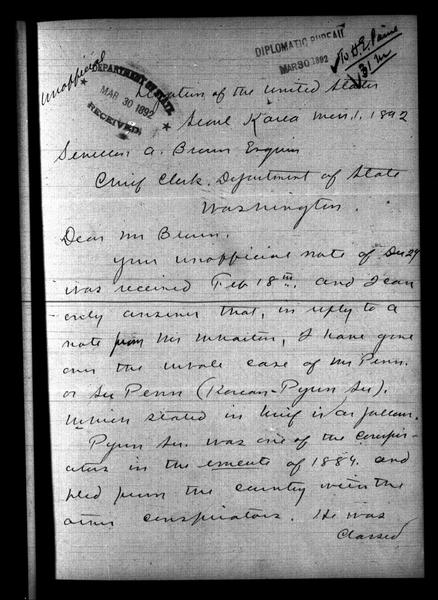 Unofficial
DEPARTMENT OF STATE
MAR 30 1892
RECEIVED
DIPLOMATIC BUREAU
MAR 30 1892
To H.E. Paine
31 M
Legation of the United States
Seoul Korea Mch. 1. 1892
Sevellon A. Brown Esquire
Chief Clerk. Department of State
Washington.
Dear Mr Brown.
Your unofficial note of Dec 29
was received Feb 18th. and I can
only answer that, in reply to a
note from Mr Wharton, I have gone
over the whole case of Mr Penn.
or Su Penn (Korean-Pyun Su).
Which stated in brief is as follows.
Pyun Su. was one of the conspir-
ators in the emeute of 1884. and
fled from the country with the
other conspirators. He was
classed